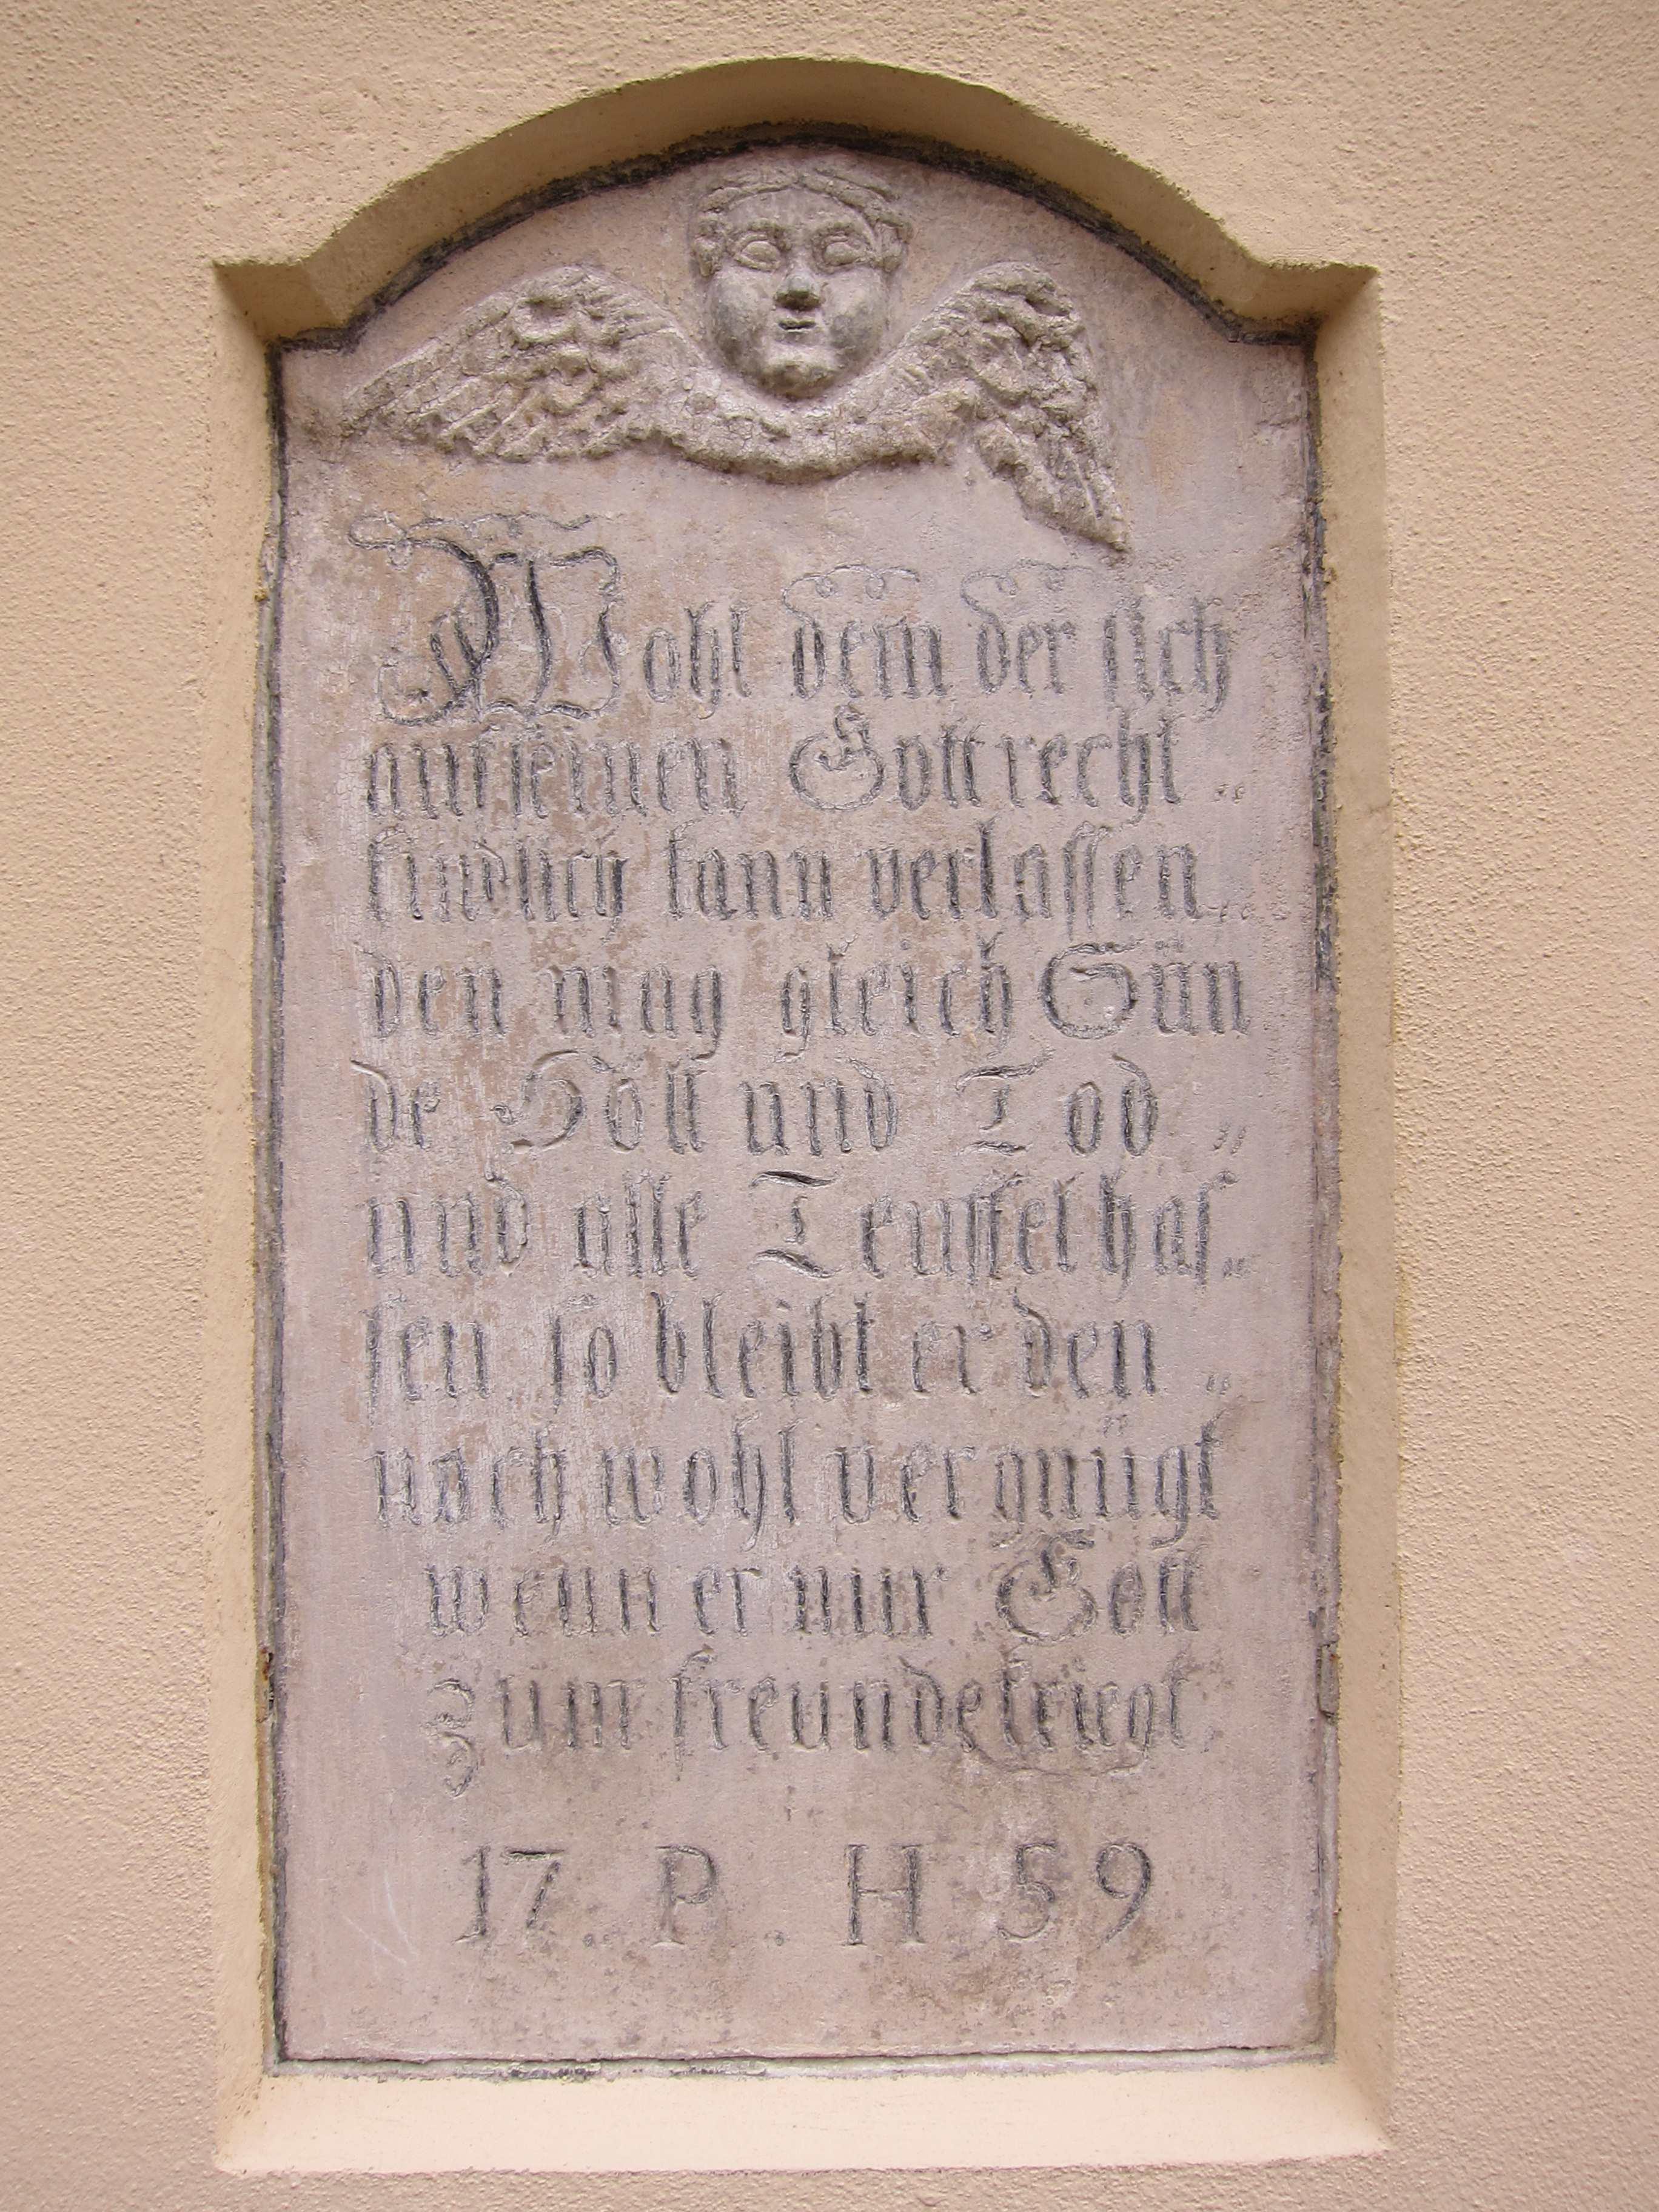 Wohl dem der sich
auf seinen Gott recht „
kindlich kann verlassen „
den mag gleich Sün
de Höll und Tod „
und alle Teuffel has„
sen so bleibt er den „
nach wohl vergnügt
wenn er nur Gott
zum freunde kriegt
17. P. H 59